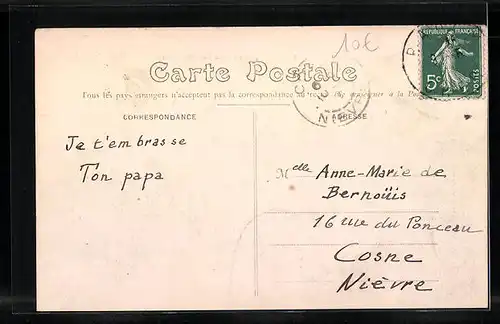 10€
RÉPUBLIQUE FRANÇAISE
5c
POSTES
Carte Postale
Tous les pays étrangers n'acceptent pas la correspondance au recto
NIÈVRE
CORRESPONDANCE
ADRESSE
Je t'embrasse
Ton papa
Melle Anne-Marie de
Bernoüis
16 rue du Ponceau
Cosne
Nièvre